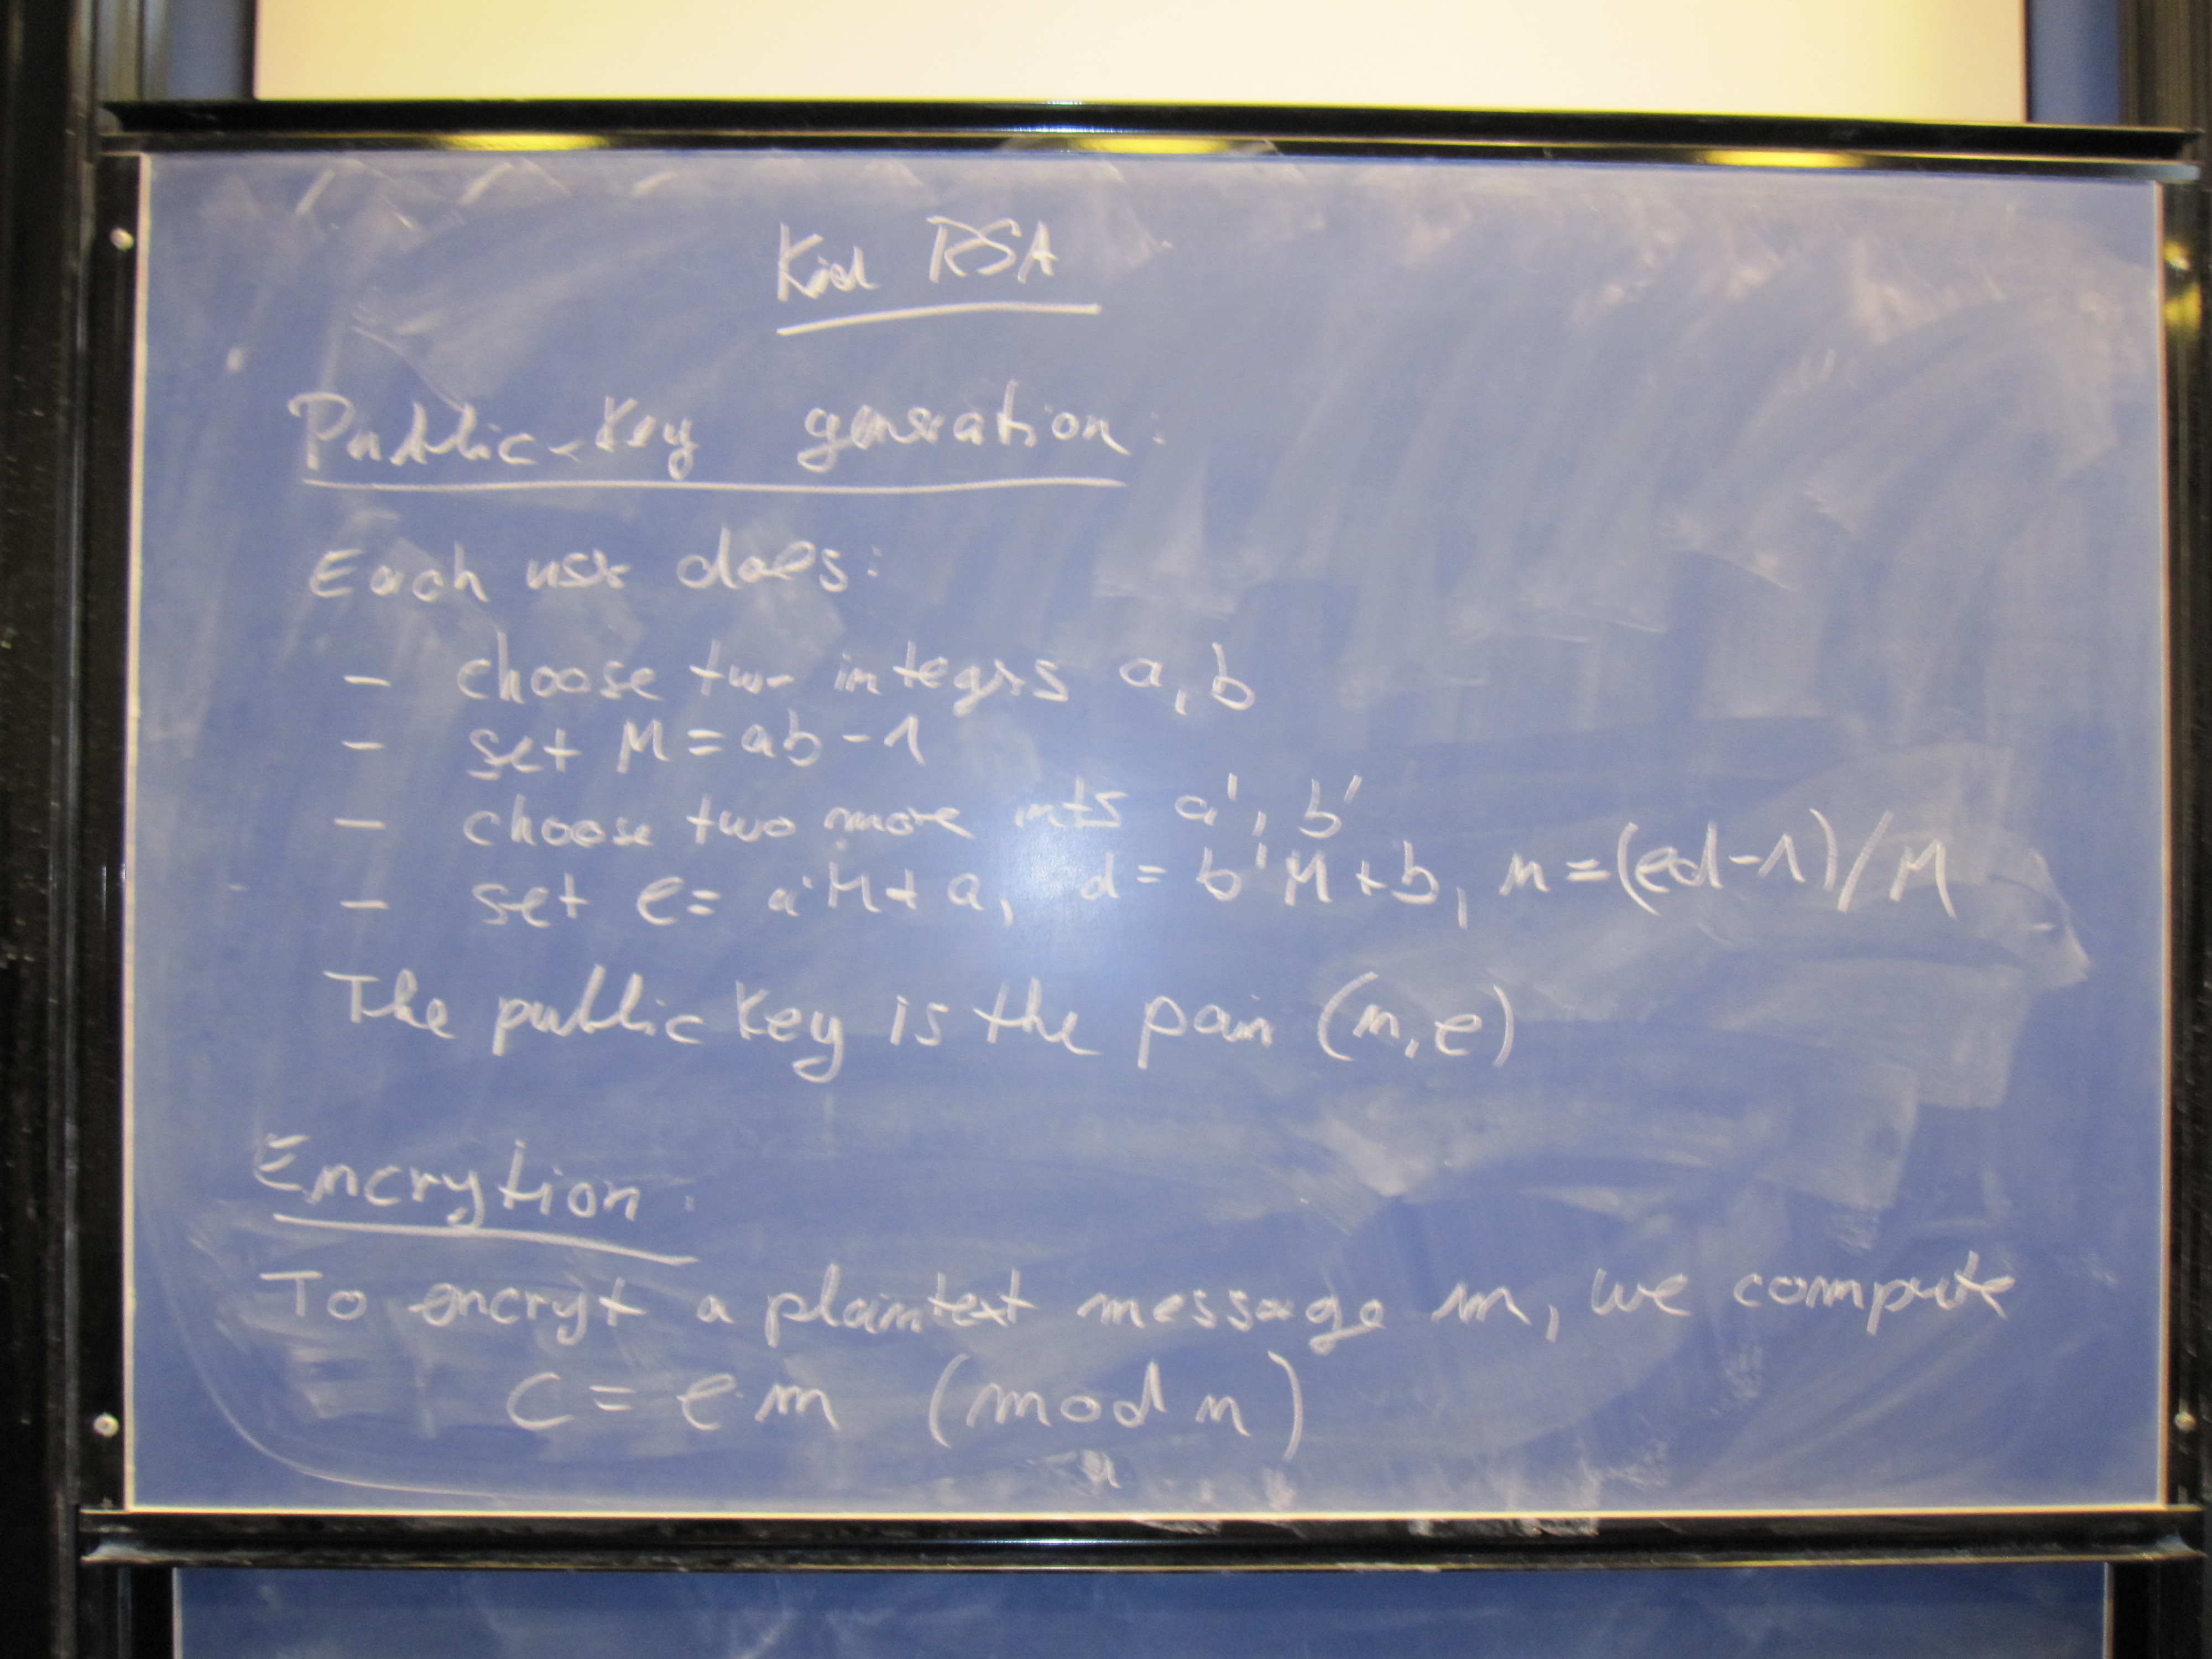 Kid RSA
Public-Key generation:
Each user does:
- choose two integers a, b
- set M = ab - 1
- choose two more ints a', b'
- set e = a'M + a, d = b'M + b, n = (ed - 1)/M
The public key is the pair (n, e)
Encrytion:
To encryt a plaintext message m, we compute
C = e·m (mod n)